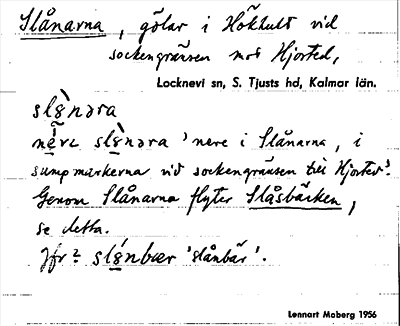 Slånarna, gölar i Hökhult vid
sockengränsen mot Hjorted,
Locknevi sn, S. Tjusts hd, Kalmar län.
slǝ̀nǝra
slǝ̀nǝra 'nere i Slånarna, i
sumpmarkerna vid sockengränsen till Hjorted'.
Genom Slånarna flyter Slåsbäcken,
se detta.
Jfr? 'slånbär'.
Lennart Moberg 1956